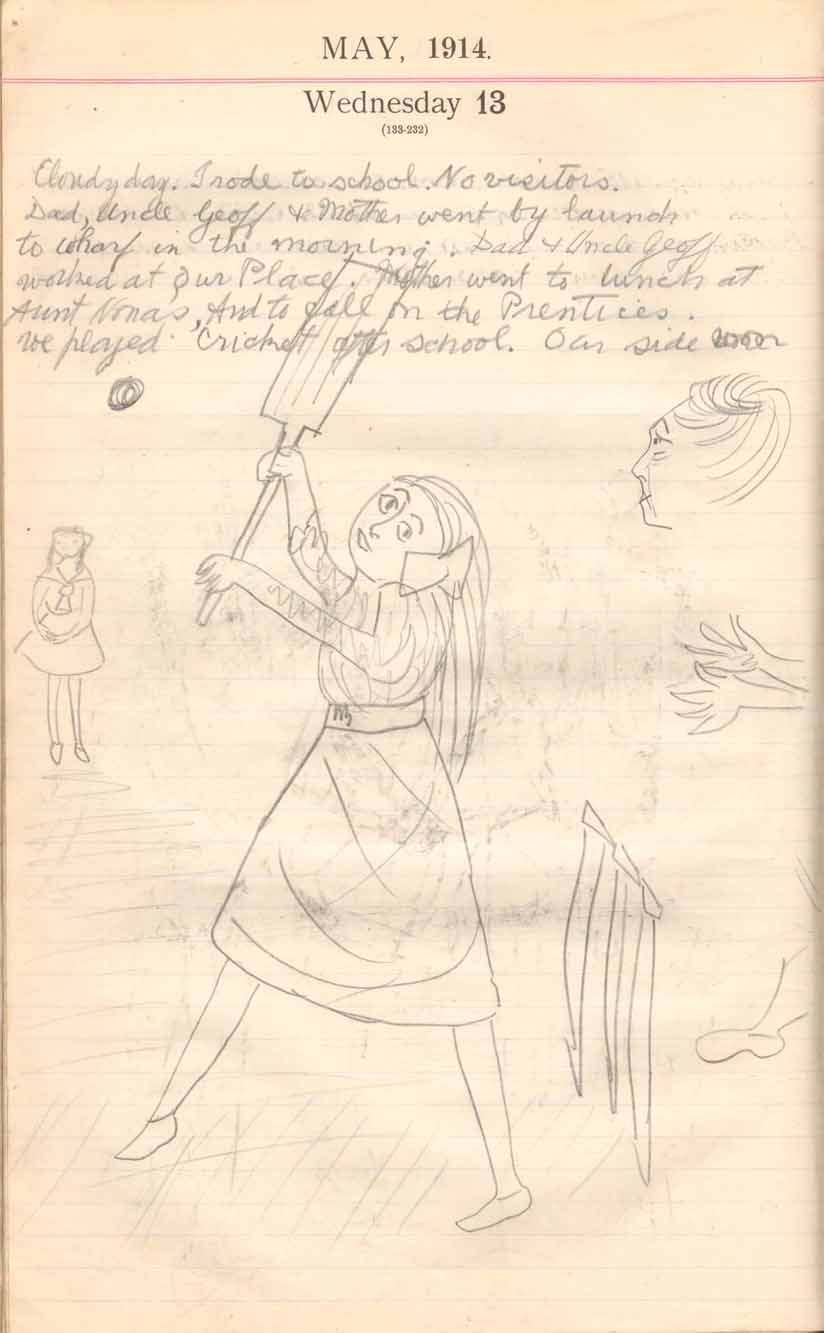 MAY, 1914.
Wednesday 13
(133-232)
Cloudy day. I rode to school. No visitors.
Dad, Uncle Geoff & Mother went by launch
to wharf in the morning. Dad & Uncle Geoff
worked at Our Place. Mother went to lunch at
Aunt Nona's, And to call on the Prentices.
We played Cricket after school. Our side won